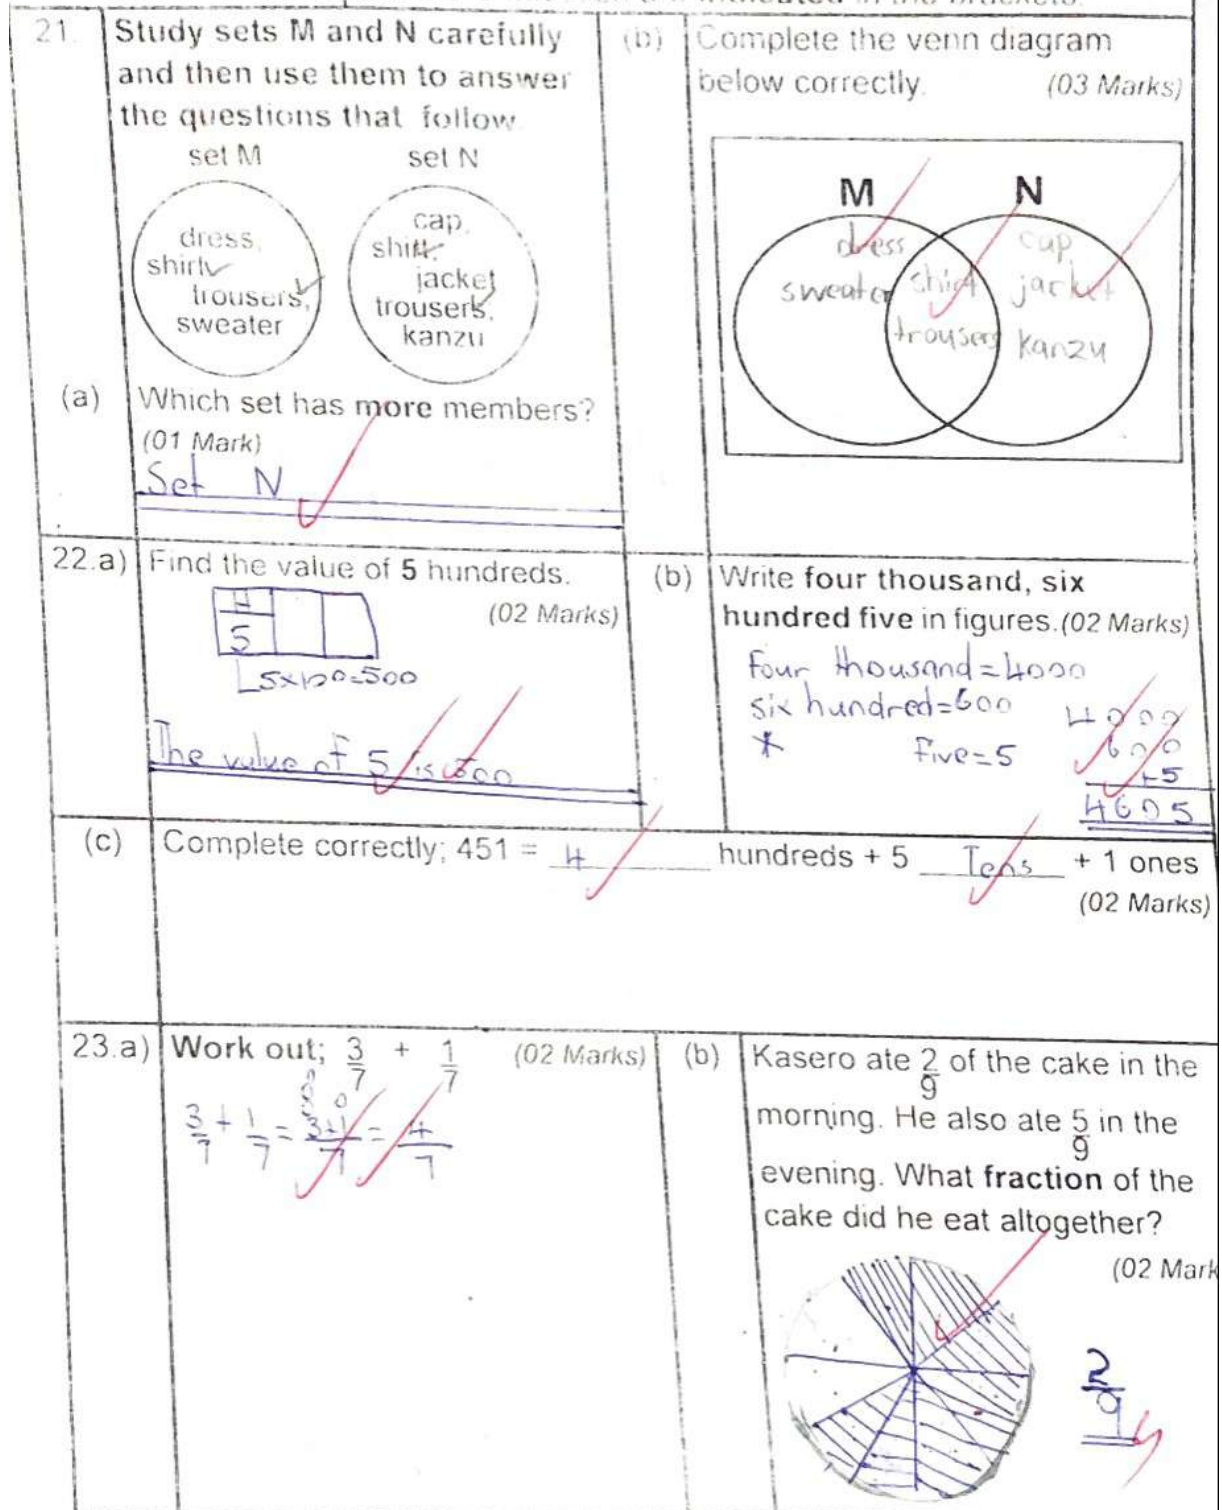 21.
Study sets M and N carefully
and then use them to answer
the questions that follow.
set M
set N
dress,
shirt,
trousers,
sweater
cap,
shirt,
jacket
trousers,
kanzu
(a)
Which set has more members?
(01 Mark)
Set N
(b)
Complete the venn diagram
below correctly.
(03 Marks)
M
N
dress
sweater
shirt
trousers
cap,
jacket
kanzu
22.a)
Find the value of 5 hundreds.
(02 Marks)
H
5
5x100=500
The value of 5 is 500
(b)
Write four thousand, six
hundred five in figures.(02 Marks)
Four thousand=4000
six hundred=600
Five=5
4000
600
+5
4605
(c)
Complete correctly; 451 = 4 hundreds + 5 Tens + 1 ones
(02 Marks)
23.a)
Work out; 3/7 + 1/7 (02 Marks)
3/7 + 1/7 = 3+1/7 = 4/7
(b)
Kasero ate 2/9 of the cake in the
morning. He also ate 5/9 in the
evening. What fraction of the
cake did he eat altogether?
(02 Mark
2/9